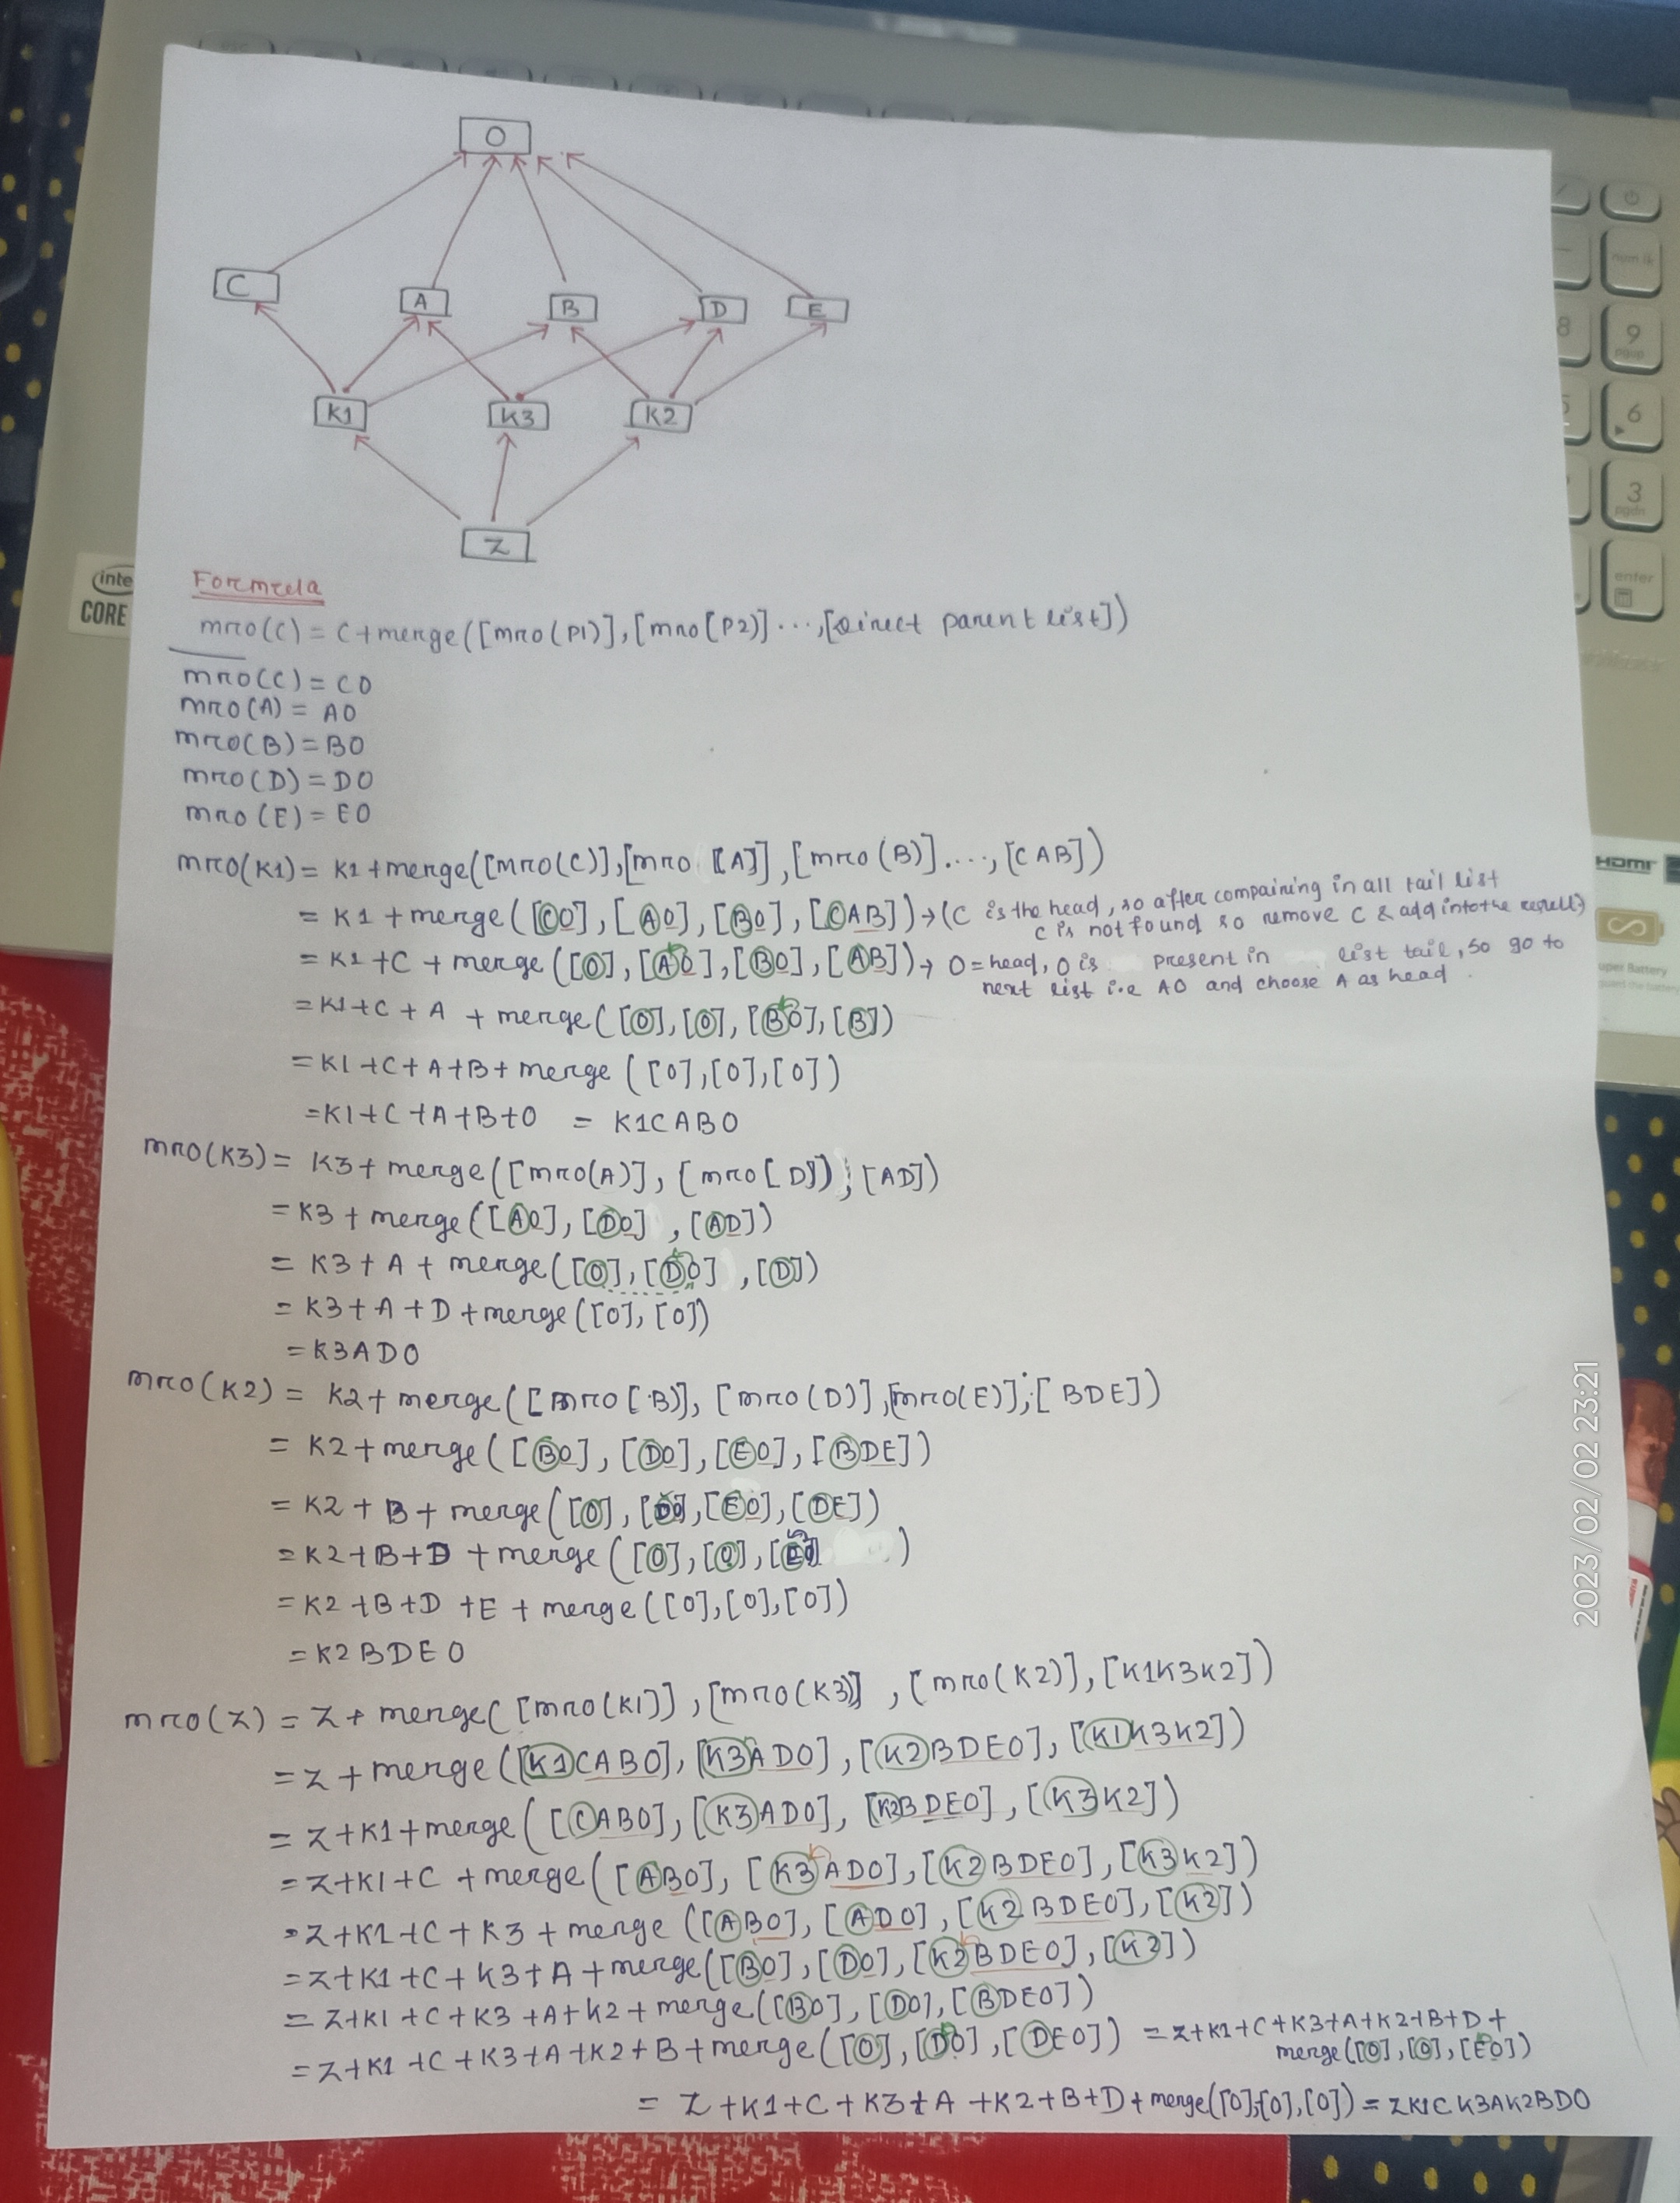 O
C
A
B
D
E
K1
K3
K2
Z
Formula
mro(C) = C+merge([mro(P1)],[mro[P2)]...,[Direct parent list])
mro(C) = CO
mro(A) = AO
mro(B) = BO
mro(D) = DO
mro(E) = EO
mro(K1) = K1+merge([mro(C)],[mro [A]],[mro(B)]....,[CAB])
= K1+merge([CO],[AO],[BO],[CAB])→(C is the head, so after compairing in all tail list
C is not found so remove C & add into the result)
= K1+C+merge([O],[AO],[BO],[AB])→ O=head, O is present in list tail, so go to
next list i.e AO and choose A as head.
= K1+C+A+merge([O],[O],[BO],[B])
= K1+C+A+B+merge([O],[O],[O])
= K1+C+A+B+O = K1CABO
mro(K3) = K3+merge([mro(A)],[mro[D]),[AD])
= K3+merge([AO],[DO],[AD])
= K3+A+merge([O],[DO],[D])
= K3+A+D+merge([O],[O])
= K3ADO
mro(K2) = K2+merge([mro[B)],[mro(D)],[mro(E)],[BDE])
= K2+merge([BO],[DO],[EO],[BDE])
= K2+B+merge([O],[DO],[EO],[DE])
= K2+B+D+merge([O],[O],[EO] )
= K2+B+D+E+merge([O],[O],[O])
= K2BDEO
mro(Z) = Z+merge([mro(K1)],[mro(K3)],[mro(K2)],[K1K3K2])
= Z+merge([K1CABO],[K3ADO],[K2BDEO],[K1K3K2])
= Z+K1+merge([CABO],[K3ADO],[K2BDEO],[K3K2])
= Z+K1+C+merge([ABO],[K3ADO],[K2BDEO],[K3K2])
= Z+K1+C+K3+merge([ABO],[ADO],[K2BDEO],[K2])
= Z+K1+C+K3+A+merge([BO],[DO],[K2BDEO],[K2])
= Z+K1+C+K3+A+K2+merge([BO],[DO],[BDEO])
= Z+K1+C+K3+A+K2+B+merge([O],[DO],[DEO]) = Z+K1+C+K3+A+K2+B+D+
merge([O],[O],[EO])
= Z+K1+C+K3+A+K2+B+D+merge([O],[O],[O]) = ZK1CK3AK2BDO
2023/02/02 23:21
CORE
HDMI
num lk
9
pgup
6
3
pgdn
enter
8